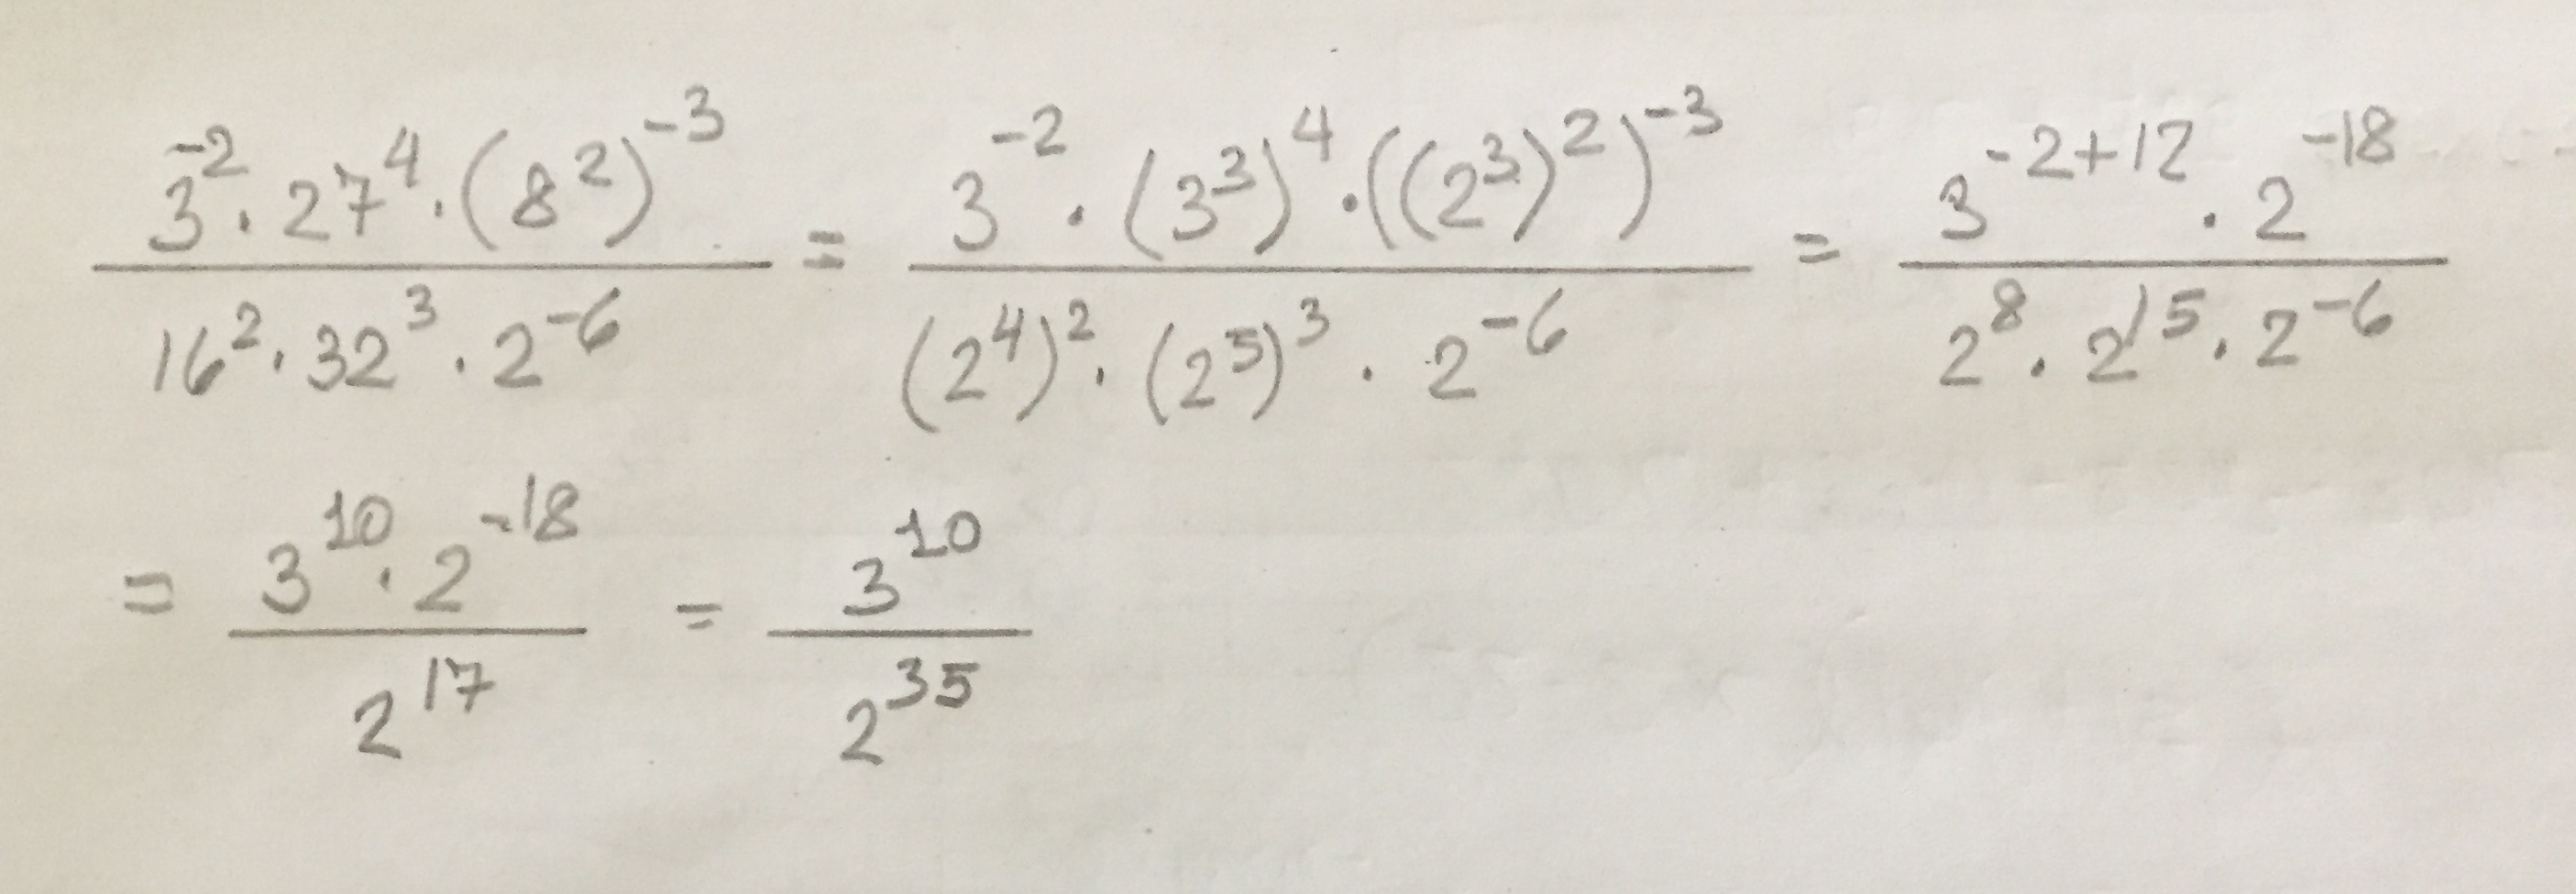 \frac{3^{-2} \cdot 27^4 \cdot (8^2)^{-3}}{16^2 \cdot 32^3 \cdot 2^{-6}} = \frac{3^{-2} \cdot (3^3)^4 \cdot ((2^3)^2)^{-3}}{(2^4)^2 \cdot (2^5)^3 \cdot 2^{-6}} = \frac{3^{-2+12} \cdot 2^{-18}}{2^8 \cdot 2^{15} \cdot 2^{-6}}
= \frac{3^{10} \cdot 2^{-18}}{2^{17}} = \frac{3^{10}}{2^{35}}